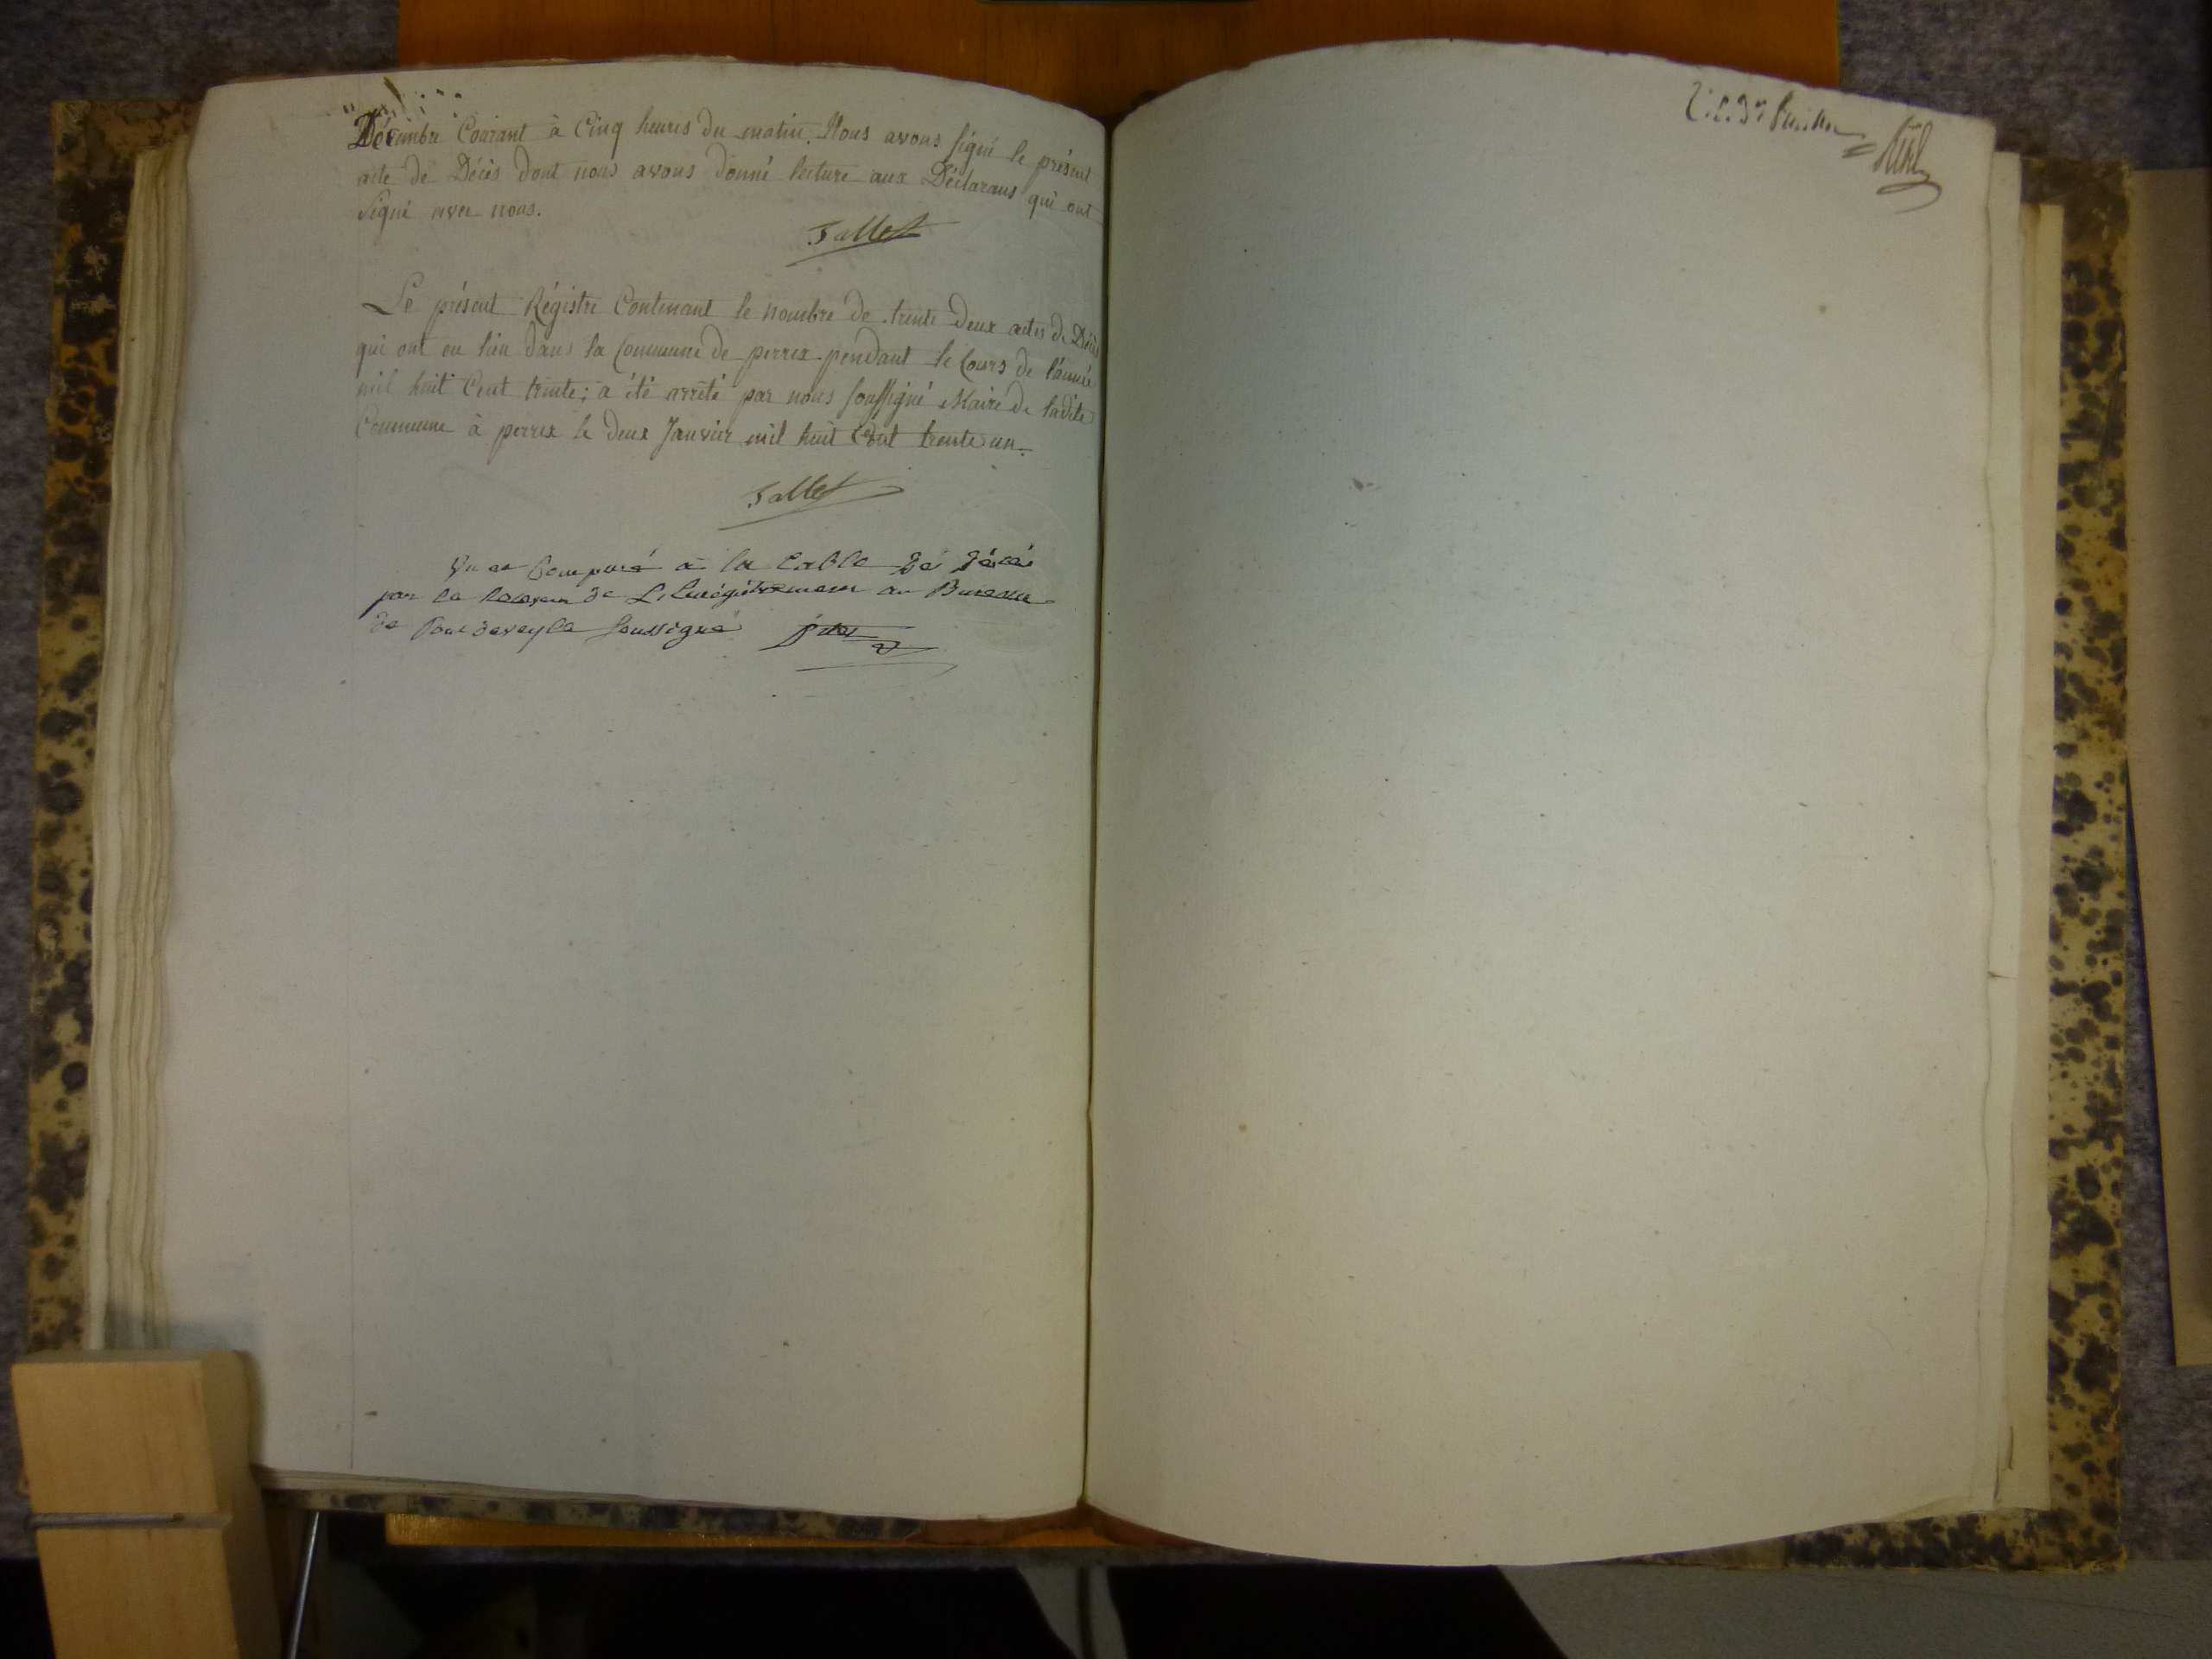 Décembre Courant à Cinq heures du matin. Nous avons signé le présent
acte de Décès dont nous avons donné lecture aux Déclarans qui ont
signé avec nous.
Tallet
Le présent Régistre Contenant le nombre de trente deux actes de Décès
qui ont eu lieu dans la Commune de perrex pendant le Cours de l'année
mil huit Cent trente; a été arrêté par nous soussigné Maire de ladite
Commune à perrex le deux Janvier mil huit Cent trente un.
Tallet
Vu et Comparé à la table de décès
par le Receveur de L'Enregistrement au Bureau
de Pontdeveyle soussigné